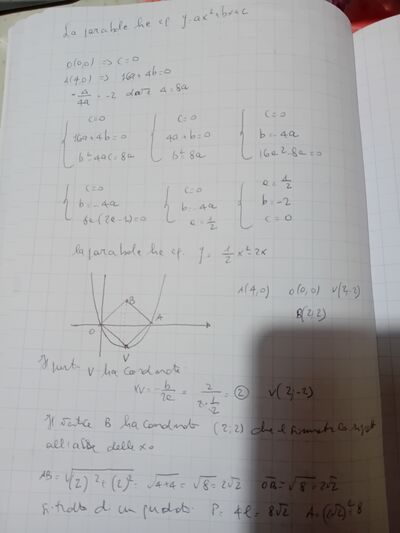 La parabola ha eq. y=ax²+bx+c
O(0,0) => c=0
A(4,0) => 16a+4b=0
-Δ/4a = -2 Δ=8a
{ c=0 { c=0 { c=0
16a+4b=0 4a+b=0 b=-4a
b²-4ac=8a b²=8a 16a²-8a=0
{ c=0 { c=0 { a=1/2
b=-4a b=-4a b=-2
8a(2a-1)=0 a=1/2 c=0
la parabola ha eq. y= 1/2 x²-2x
A(4,0) O(0,0) V(2,-2)
B(2,2)
B
O A
V
Il punto V ha coordinate
xV=-b/2a = 2/2·1/2 = 2 V(2;-2)
Il vertice B ha coordinate (2;2) che è simmetrico rispett
all'asse delle x
AB=√(2)²+(2)² = √4+4 = √8=2√2 OB=√8=2√2
Si tratta di un quadrato P=4l=8√2 A=(2√2)²=8